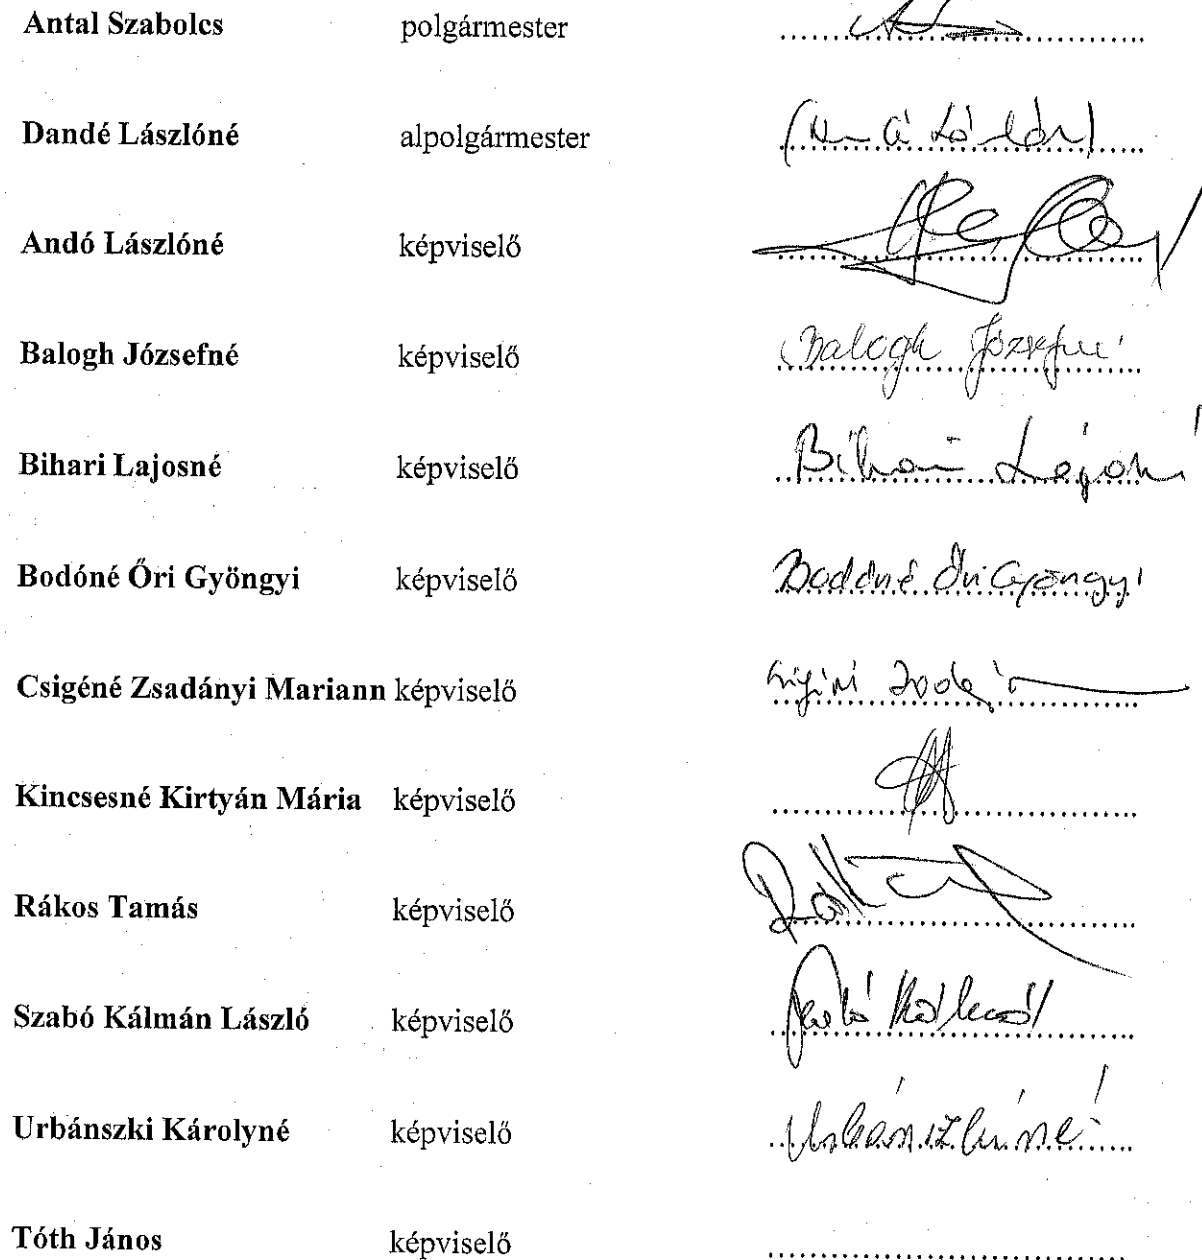 Antal Szabolcs polgármester
Dandé Lászlóné alpolgármester
Andó Lászlóné képviselő
Balogh Józsefné képviselő Balogh Józsefné
Bihari Lajosné képviselő Bihari Lajosné
Bodóné Őri Gyöngyi képviselő Bodóné Őri Gyöngyi
Csigéné Zsadányi Mariann képviselő
Kincsesné Kirtyán Mária képviselő
Rákos Tamás képviselő
Szabó Kálmán László képviselő
Urbánszki Károlyné képviselő Urbánszkiné
Tóth János képviselő